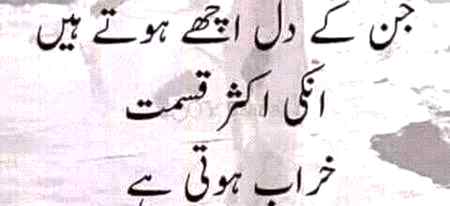 جن کے دل اچھے ہوتے ہیں
انکی اکثر قسمت
خراب ہوتی ہے